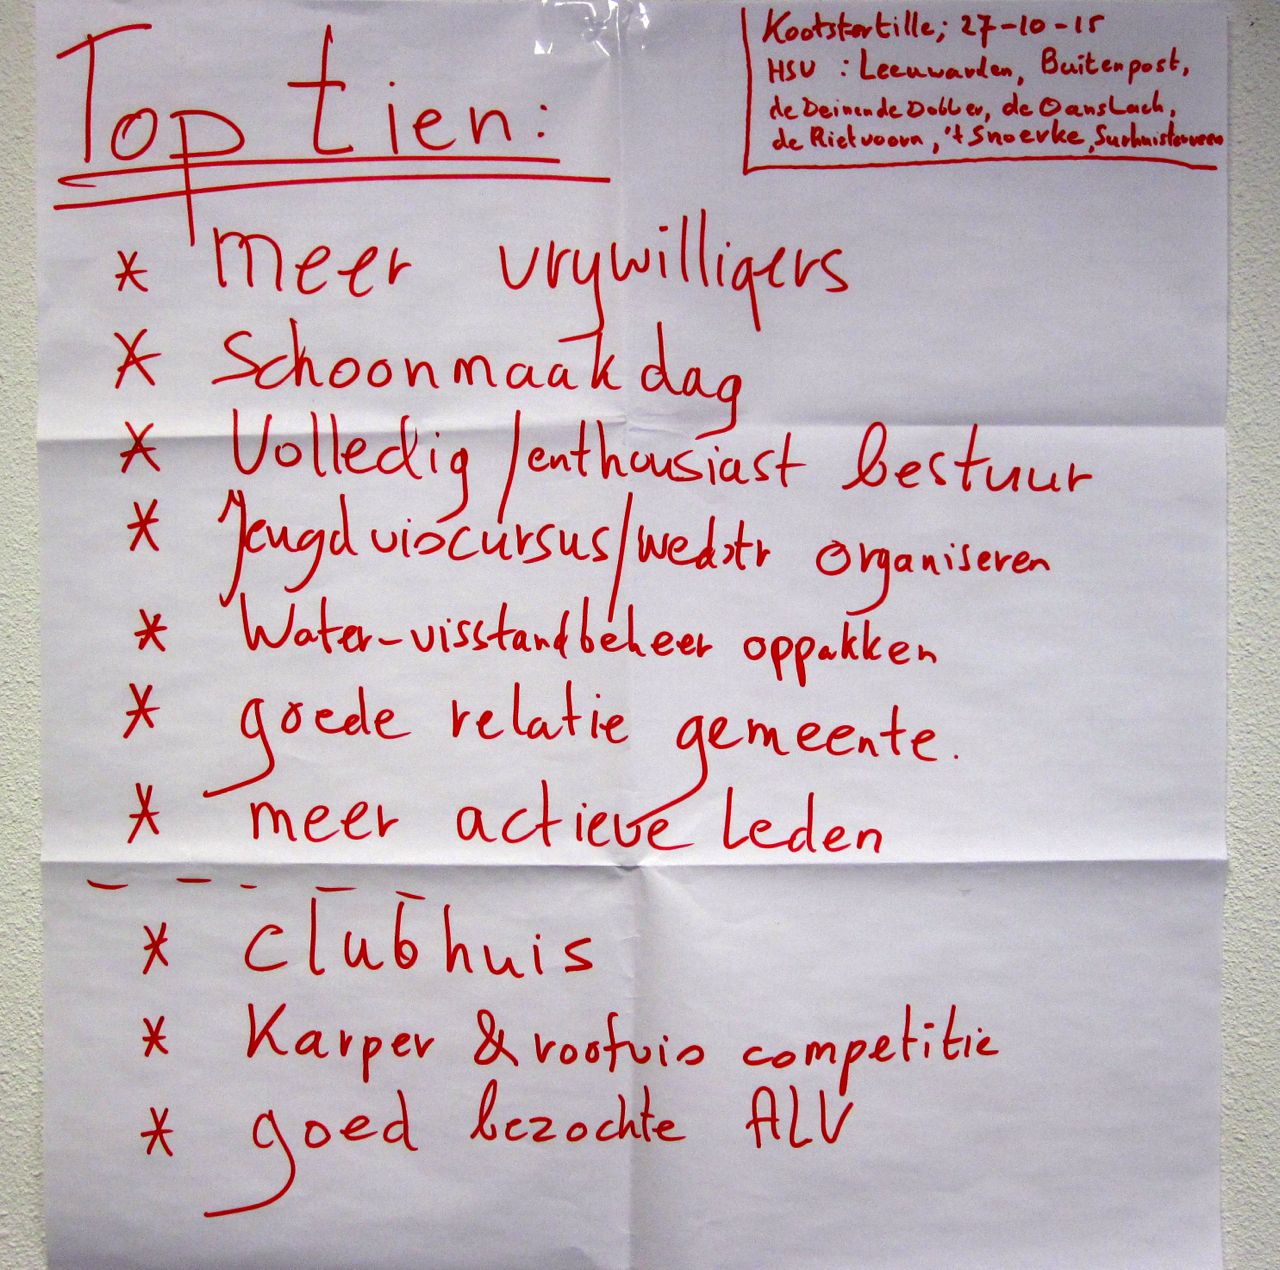 Top tien:
Kootstertille; 27-10-15
HSV : Leeuwarden, Buitenpost,
de Deinende Dobber, de Oanslach,
de Rietvoorn, 't Snoerke, Surhuisterveen
* meer vrywilligers
* Schoonmaakdag
* Volledig/enthousiast bestuur
* Jeugdviscursus/wedstr organiseren
* Water-visstandbeheer oppakken
* goede relatie gemeente.
* meer actieve leden
* clubhuis
* Karper & roofvis competitie
* goed bezochte ALV